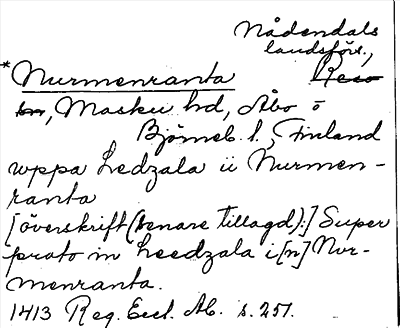 Nådendals
landsförs.,
*Nurmenranta Reso
sn, Masku hd, Åbo o
Björneb. l., Finland
uppa Ledzala ii Nurmen-
ranta
[överskrift (senare tillagd):] Super
prato in Leedzala i[n] Nur-
menranta.
1413 Reg. Eccl. Ab. s. 257.